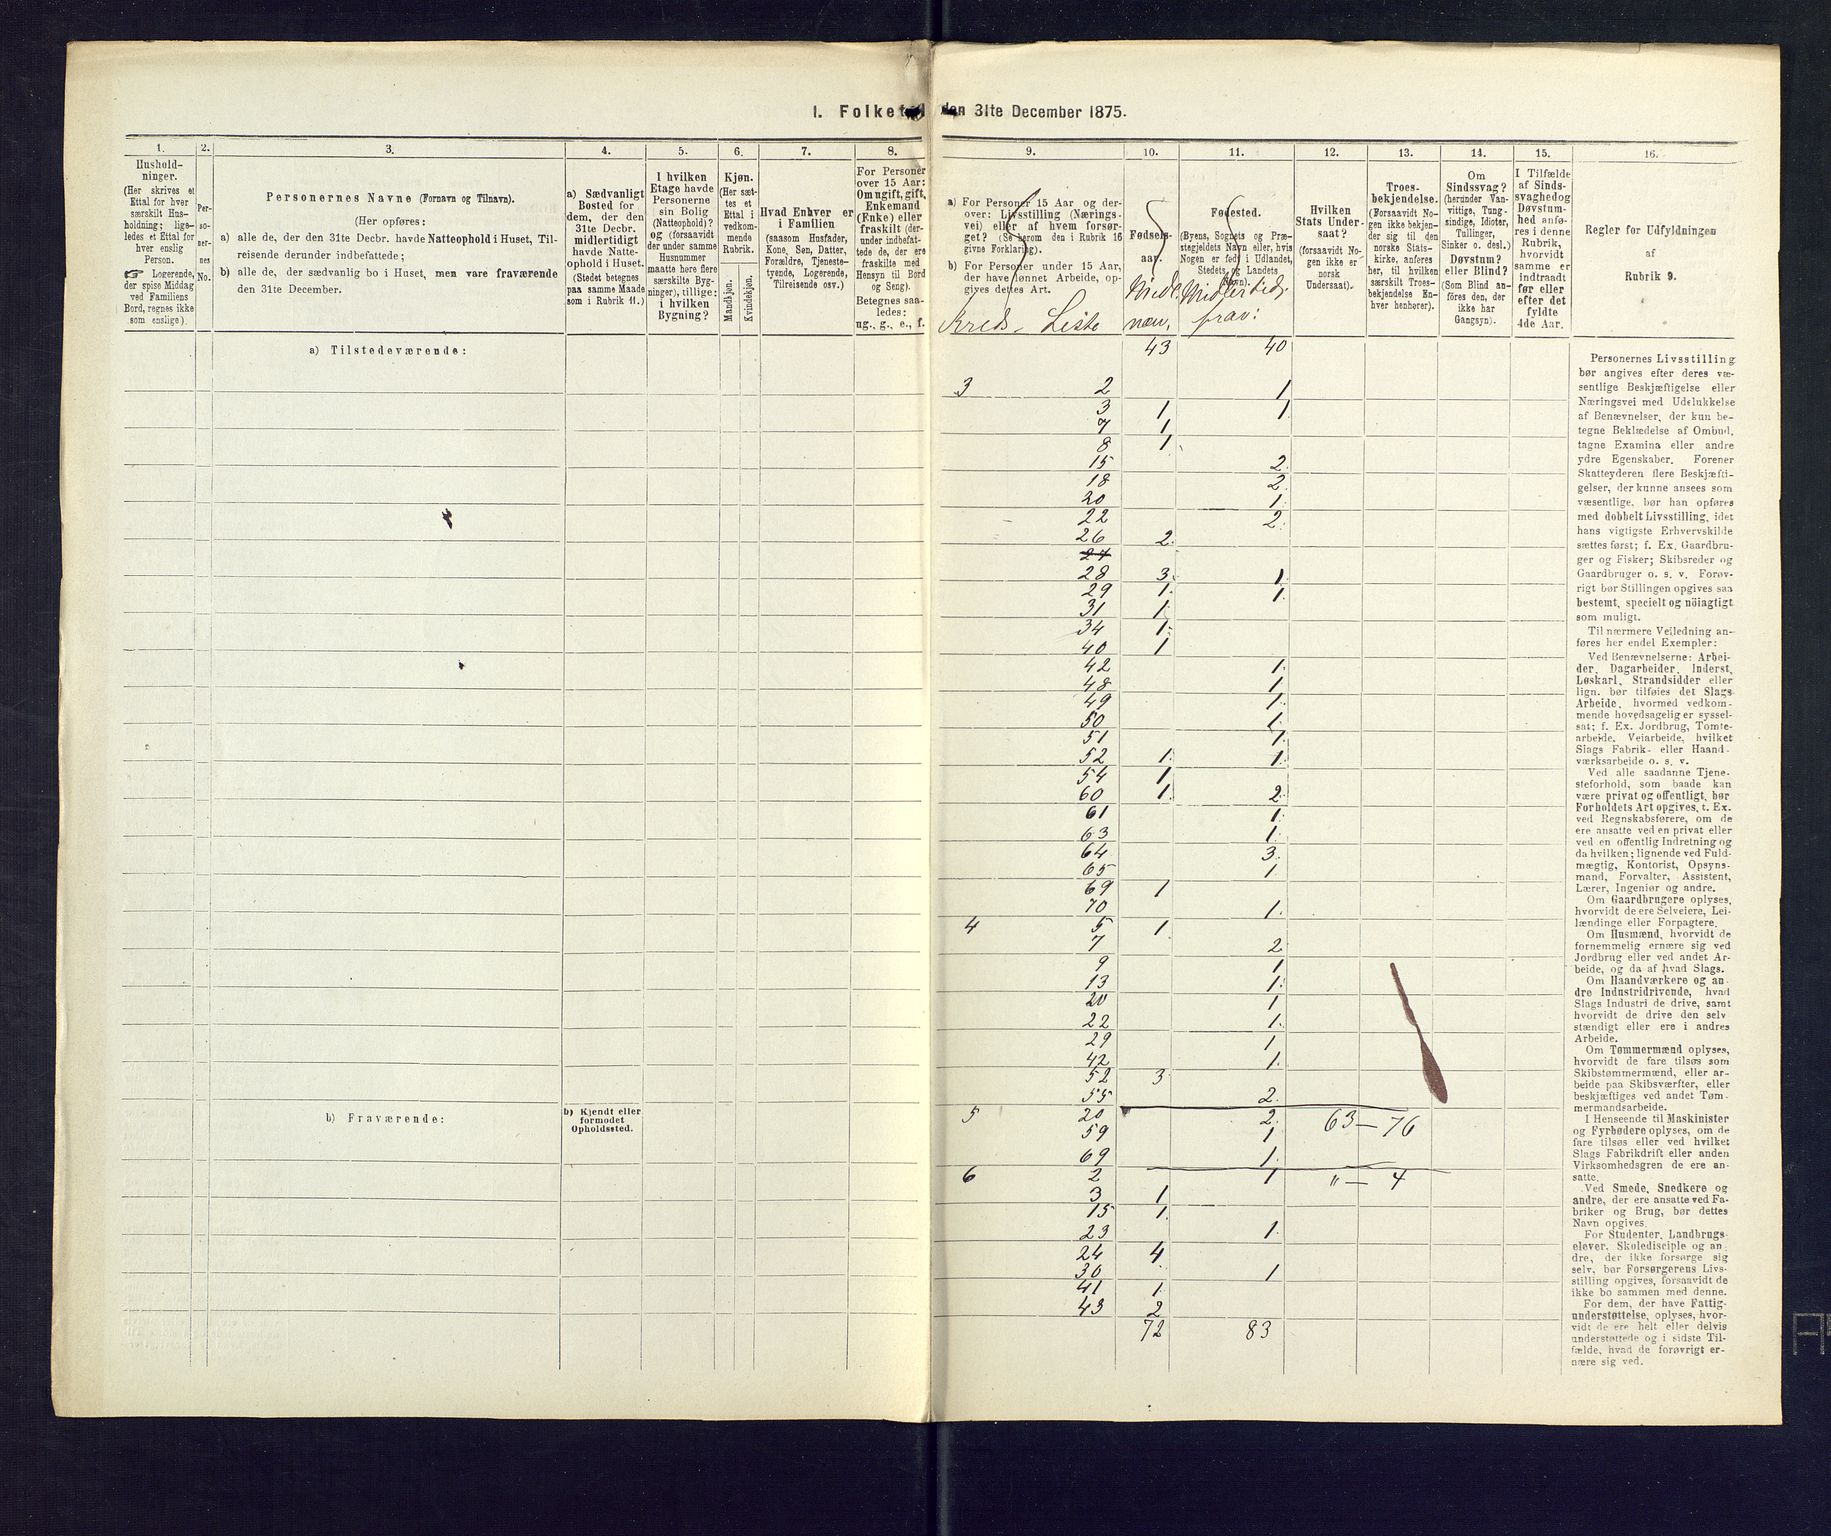 1. Folketæl den 31te December 1875.
1.
Hushold-
ninger.
(Her skrives et
Ettal for hver
særskilt Hus-
holdning; lige-
ledes et Ettal for
hver enslig
Person.
☞ Logerende,
der spise Middag
ved Familiens
Bord, regnes ikke
som enslige).
2.
Per-
so-
ner-
nes
No.
3.
Personernes Navne (Fornavn og Tilnavn).
(Her opføres:
a) alle de, der den 31te Decbr. havde Natteophold i Huset, Til-
reisende derunder indbefattede;
b) alle de, der sædvanlig bo i Huset, men vare fraværende
den 31te December.
4.
a) Sædvanligt
Bosted for
dem, der den
31te Decbr.
midlertidigt
havde Natte-
ophold i Huset.
(Stedet betegnes
paa samme Maade
som i Rubrik 11.)
5.
I hvilken
Etage havde
Personerne
sin Bolig
(Natteophold)?
og (forsaavidt
der under samme
Husnummer
maatte høre flere
særskilte Byg-
ninger), tillige:
i hvilken
Bygning?
6.
Kjøn.
(Her sæt-
tes et
Ettal i
vedkom-
mende
Rubrik.
Mandkjøn.
Kvindekjøn.
7.
Hvad Enhver er
i Familien
(saasom Husfader,
Kone, Søn, Datter,
Forældre, Tjeneste-
tyende, Logerende,
Tilreisende osv.)
8.
For Personer
over 15 Aar:
Om ugift, gift,
Enkemand
(Enke) eller
fraskilt (der-
under indbefat-
tede de, der ere
fraskilte med
Hensyn til Bord
og Seng).
Betegnes saa-
ledes:
ug., g., e., f.
9.
a) For Personer 15 Aar og der-
over: Livsstilling (Nærings-
vei) eller af hvem forsør-
get? (Se herom den i Rubrik 16
givne Forklaring).
b) For Personer under 15 Aar,
der have lønnet Arbeide, op-
gives dettes Art.
Kreds. Liste
10.
Fødsels-
aar.
Midl.
næv.
11.
Fødested.
(Byens, Sognets og Præ-
stegjeldets Navn eller, hvis
Nogen er født i Udlandet,
Stedets og Landets
Navn).
Midlertidig
frav:
12.
Hvilken
Stats Under-
saat?
(forsaavidt No-
gen ikke er
norsk
Undersaat).
13.
Troes-
bekjendelse.
(Forsaavidt No-
gen ikke bekjen-
der sig til den
norske Stats-
kirke, anføres
her, til hvilken
særskilt Troes-
bekjendelse En-
hver henhører).
14.
Om
Sindssvag?
(herunder Van-
vittige, Tung-
sindige, Idioter,
Tullinger,
Sinker o. desl.)
Døvstum?
eller Blind?
(Som Blind an-
føres den, der
ikke har
Gangsyn).
15.
I Tilfælde
af Sinds-
svaghed og
Døvstum-
hed anfø-
res i denne
Rubrik,
hvorvidt
samme er
indtraadt
før eller
efter det
fyldte
4de Aar.
16.
Regler for Udfyldningen
af
Rubrik 9.
a) Tilstedeværende:
43 40
3 2 1
3 1 1
7 1
8 1
15 2
18 2
20 1
22 2
26 2
27
28 3 1
29 1 1
31 1
34 1
40 1
42 1
48 1
49 1
50 1
51 1
52 1 1
54 1
60 1 2
61 1
63 1
64 3
65 1
69 1
70 1
4 5 1
7 2
9 1
13 1
20 1
22 1
29 1
42 1
52 3
55 2
b) Fraværende:
b) Kjendt eller
formodet
Opholdssted.
5 20 2 63 — 76
59 1
69 1
6 2 1 " — 4
3 1
15 1
23 1
24 4
30 1
41 1
43 2
72 83
Personernes Livsstilling
bør angives efter deres væ-
sentlige Beskjæftigelse eller
Næringsvei med Udelukkelse
af Benævnelser, der kun be-
tegne Beklædelse af Ombud,
tagne Examina eller andre
ydre Egenskaber. Forener
Skatteyderen flere Beskjæfti-
gelser, der kunne ansees som
væsentlige, bør han opføres
med dobbelt Livsstilling, idet
hans vigtigste Erhvervskilde
sættes først; f. Ex. Gaardbru-
ger og Fisker; Skibsreder og
Gaardbruger o. s. v. Forøv-
rigt bør Stillingen opgives saa
bestemt, specielt og nøiagtigt
som muligt.
Til nærmere Veiledning an-
føres her endel Exempler:
Ved Benævnelserne: Arbei-
der, Dagarbeider, Inderst,
Løskarl, Strandsidder eller
lign. bør tilføies det Slags
Arbeide, hvormed vedkom-
mende hovedsagelig er syssel-
sat; f. Ex. Jordbrug, Tomte-
arbeide, Veiarbeide, hvilket
Slags Fabrik- eller Haand-
værksarbeide o. s. v.
Ved alle saadanne Tjene-
steforhold, som baade kan
være privat og offentligt, bør
Forholdets Art opgives, t. Ex.
ved Regnskabsførere, om de
ere ansatte ved en privat eller
ved en offentlig Indretning og
da hvilken; lignende ved Fuld-
mægtig, Kontorist, Opsyns-
mand, Forvalter, Assistent,
Lærer, Ingeniør og andre.
Om Gaardbrugere oplyses,
hvorvidt de ere Selveiere, Lei-
lændinge eller Forpagtere.
Om Husmænd, hvorvidt de
fornemmelig ernære sig ved
Jordbrug eller ved andet Ar-
beide, og da af hvad Slags.
Om Haandværkere og an-
dre Industridrivende, hvad
Slags Industri de drive, samt
hvorvidt de drive den selv
stændigt eller ere i andres
Arbeide.
Om Tømmermænd oplyses,
hvorvidt de fare tilsøs som
Skibstømmermænd, eller ar-
beide paa Skibsværfter, eller
beskjæftiges ved andet Tøm-
mermandsarbeide.
I Henseende til Maskinister
og Fyrbødere oplyses, om de
fare tilsøs eller ved hvilket
Slags Fabrikdrift eller anden
Virksomhedsgren de ere an-
satte.
Ved Smede, Snedkere og
andre, der ere ansatte ved Fa-
briker og Brug, bør dettes
Navn opgives.
For Studenter, Landbrugs-
elever, Skoledisciple og an-
dre, der ikke forsørge sig
selv, bør Forsørgerens Livs-
stilling opgives, forsaavidt de
ikke bo sammen med denne.
For dem, der have Fattig-
understøttelse, oplyses, hvor-
vidt de ere helt eller delvis
understøttede og i sidste Til-
fælde, hvad de forøvrigt er-
nære sig ved.